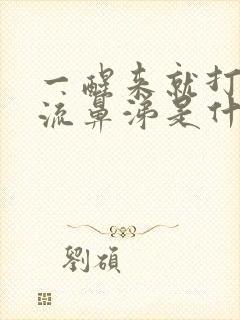 一醒来就打
流鼻涕是什
劉碩